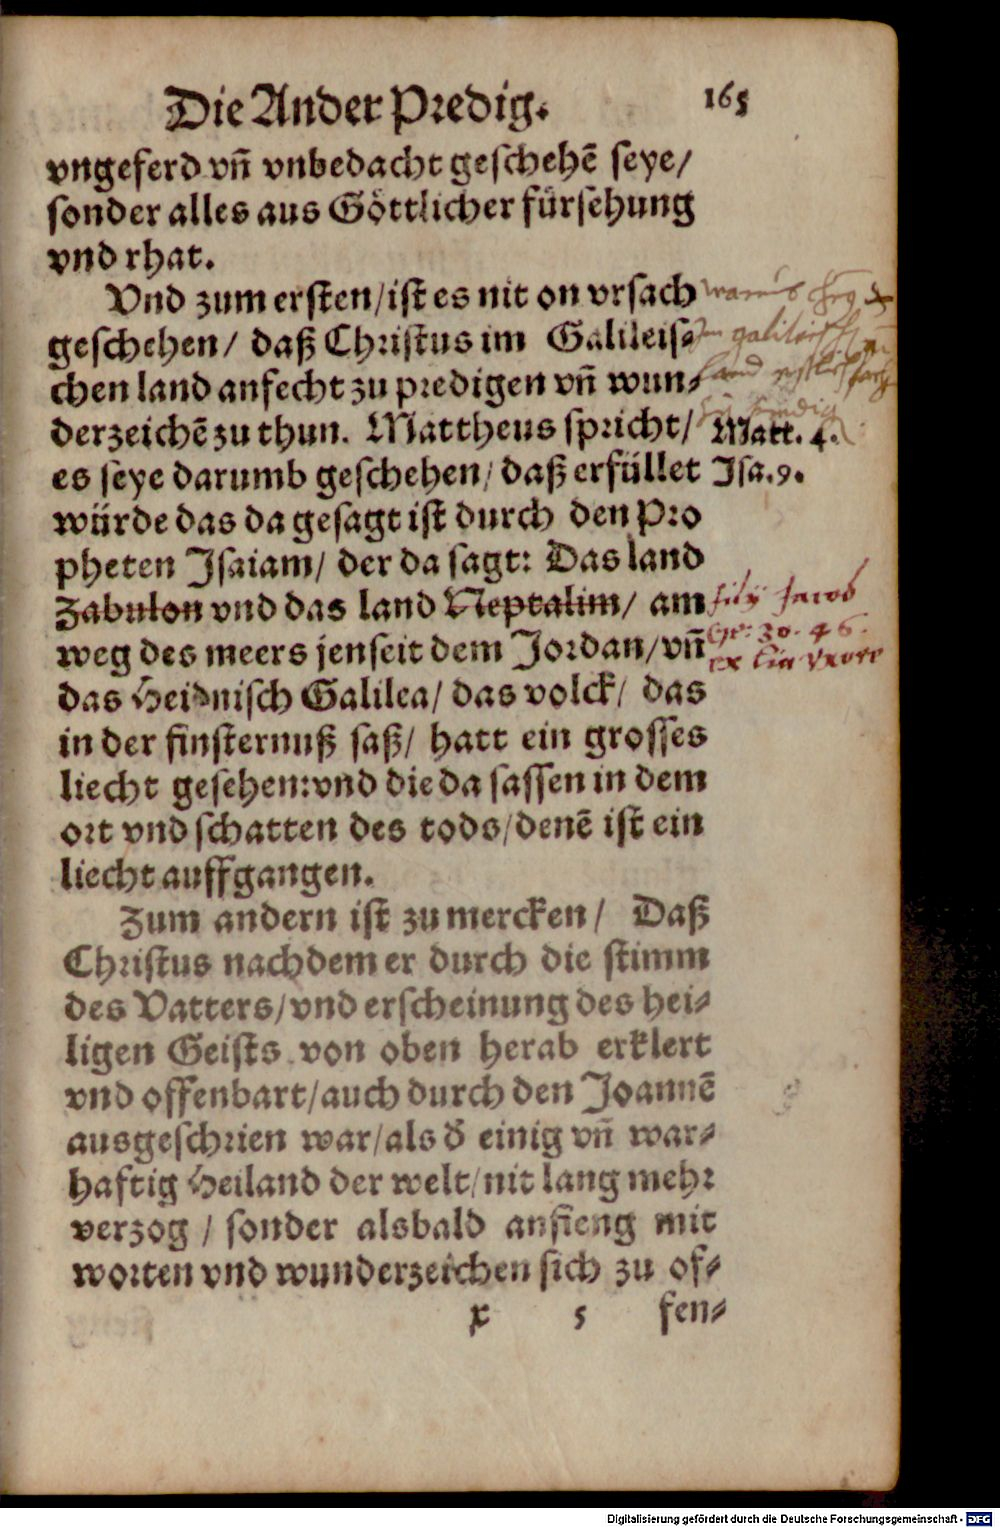 Die Ander Predig. 165
vngeferd vñ vnbedacht geschehẽ seye/
sonder alles aus Göttlicher fürsehung
vnd rhat.
Vnd zum ersten/ist es nit on vrsach
geschehen/ daß Christus im Galileis⸗
chen land anfecht zu predigen vñ wun⸗
derzeichẽ zu thun. Mattheus spricht/
Matt. 4.
es seye darumb geschehen/ daß erfüllet
Isa. 9.
würde das da gesagt ist durch den Pro
pheten Isaiam/ der da sagt: Das land
Zabulon vnd das land Neptalim/ am
filij Jacob
weg des meers jenseit dem Jordan/ vñ
Ge: 30. 46.
ex Lia vxore
das Heidnisch Galilea/ das volck/ das
in der finsternuß saß/ hatt ein grosses
liecht gesehen:vnd die da sassen in dem
ort vnd schatten des tods/denẽ ist ein
liecht auffgangen.
Zum andern ist zu mercken/ Daß
Christus nachdem er durch die stimm
des Vatters/vnd erscheinung des hei⸗
ligen Geists von oben herab erklert
vnd offenbart/auch durch den Joannẽ
ausgeschrien war/als d̃ einig vñ war⸗
haftig Heiland der welt/nit lang mehr
verzog / sonder alsbald anfieng mit
worten vnd wunderzeichen sich zu of⸗
x 5 fen⸗
Digitalisierung gefördert durch die Deutsche Forschungsgemeinschaft - DFG